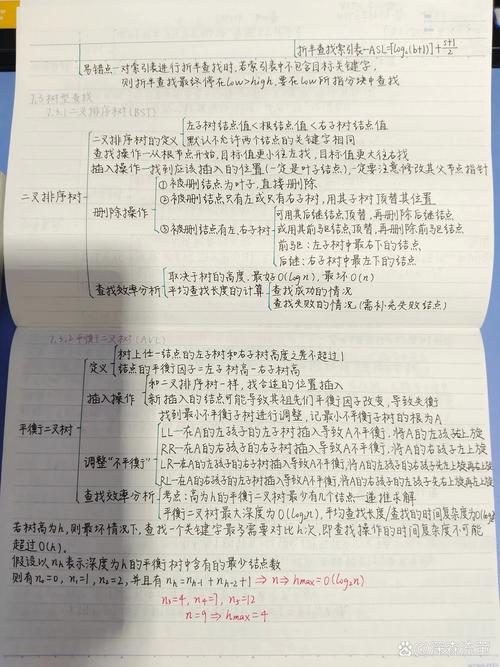 折半查找索引表-ASL=⌈log₂(b+1)⌉+\frac{s+1}{2}
易错点-对索引表进行折半查找时,若索引表中不包含目标关键字,
则折半查找最终停在low>high,要在low所指分块中查找
7.3树型查找
7.3.1二叉排序树(BST)
二叉排序树
二叉排序树的定义
左子树结点值<根结点值<右子树结点值
默认不允许两个结点的关键字相同
查找操作-从根节点开始,目标值更小往左找,目标值更大往右找
插入操作-找到应该插入的位置(一定是叶子结点),一定要注意修改其父节点指针
删除操作
①被删结点为叶子,直接删除
②被删结点只有左或只有右子树,用其子树顶替其位置
③被删结点有左,右子树
可用其后继结点顶替,再删除后继结点
或用其前驱结点顶替,再删除前驱结点
前驱:左子树中最右下的结点
后继:右子树中最左下的结点
查找效率分析
取决于树的高度,最好O(log n),最坏O(n)
平均查找长度的计算
查找成功的情况
查找失败的情况(需补充失败结点)
7.3.2平衡二叉树(AVL)
平衡二叉树
定义
树上任一结点的左子树和右子树高度之差不超过1
结点的平衡因子=左子树高-右子树高
插入操作
和二叉排序树一样,找合适的位置插入
新插入的结点可能导致其祖先们平衡因子改变,导致失衡
调整“不平衡”
找到最小不平衡子树进行调整,记最小不平衡子树的根为A
LL-在A的左孩子的左子树插入导致A不平衡,将A的左孩子右上旋
RR-在A的右孩子的右子树插入导致A不平衡,将A的右孩子左上旋
LR-在A的左孩子的右子树插入导致A不平衡,将A的左孩子的右孩子先左上旋再右上旋
RL-在A的右孩子的左子树插入导致A不平衡,将A的右孩子的左孩子先右上旋再左上旋
查找效率分析
考点:高为h的平衡二叉树最少有几个结点-递推求解
平衡二叉树最大深度为O(log₂n),平均查找长度/查找的时间复杂度为O(log₂n)
若树高为h,则最坏情况下,查找一个关键字最多需要对比h次,即查找操作的时间复杂度不可能
超过O(h)。
假设以nₕ表示深度为h的平衡树中含有的最少结点数
则有n₀=0,n₁=1,n₂=2,并且有nₕ=nₕ₋₁+nₕ₋₂+1⇒n⇒hmax=O(log₂n)
n₃=4,n₄=7,n₅=12
n=9⇒hmax=4